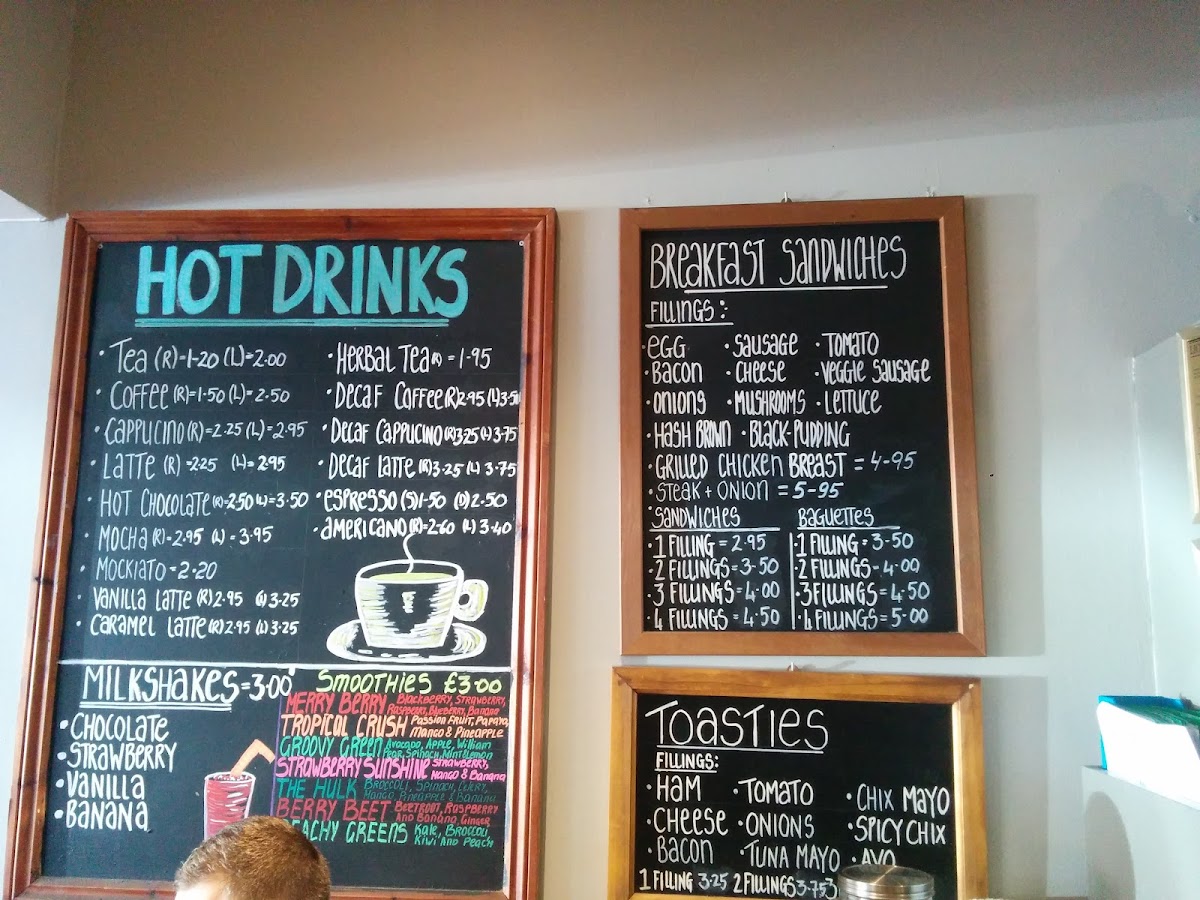 HOT DRINKS
• TEA (R)=1-20 (L)=2.00
• COFFEE (R)=1-50 (L)=2.50
• CAPPUCINO (R)=2.25 (L)=2.95
• LATTE (R)=2.25 (L)=2.95
• HOT CHOCOLATE (R)=2.50 (L)=3.50
• MOCHA (R)=2.95 (L)=3.95
• MOCKIATO=2.20
• VANILLA LATTE (R)2.95 (L)3.25
• CARAMEL LATTE (R)2.95 (L)3.25
• HERBAL TEA (R)=1.95
• DECAF COFFEE (R)2.95 (L)3.5
• DECAF CAPPUCINO (R)3.25 (L)3.75
• DECAF LATTE (R)3.25 (L)3.75
• ESPRESSO (S)1-50 (D)2-50
• AMERICANO (R)=2-60 (L)3.40
MILKSHAKES=3.00
• CHOCOLATE
• STRAWBERRY
• VANILLA
• BANANA
SMOOTHIES £3.00
MERRY BERRY BLACKBERRY, STRAWBERRY,
RASPBERRY, BLUEBERRY, BANANA
TROPICAL CRUSH PASSION FRUIT, PAPAYA,
MANGO & PINEAPPLE
GROOVY GREEN AVOCADO, APPLE, WILLIAM
PEAR, SPINACH, MINT & LEMON
STRAWBERRY SUNSHINE STRAWBERRY,
MANGO & BANANA
THE HULK BROCCOLI, SPINACH, CELERY,
MANGO, PINEAPPLE & BANANA
BERRY BEET BEETROOT, RASPBERRY
AND BANANA, GINGER
EACHY GREENS KALE, BROCCOLI
KIWI AND PEACH
BREAKFAST SANDWICHES
FILLINGS:
• EGG • SAUSAGE • TOMATO
• BACON • CHEESE • VEGGIE SAUSAGE
• ONIONS • MUSHROOMS • LETTUCE
• HASH BROWN • BLACK-PUDDING
• GRILLED CHICKEN BREAST = 4-95
• STEAK + ONION = 5-95
SANDWICHES
• 1 FILLING = 2.95
• 2 FILLINGS = 3-50
• 3 FILLINGS = 4.00
4 FILLINGS = 4.50
BAGUETTES
• 1 FILLING = 3-50
• 2 FILLINGS - 4.00
• 3 FILLINGS = 4-50
• 4 FILLINGS = 5-00
TOASTIES
FILLINGS:
• HAM • TOMATO • CHIX MAYO
• CHEESE • ONIONS • SPICY CHIX
• BACON • TUNA MAYO • AVO
1 FILLING 3-25 2 FILLINGS 3-75 3